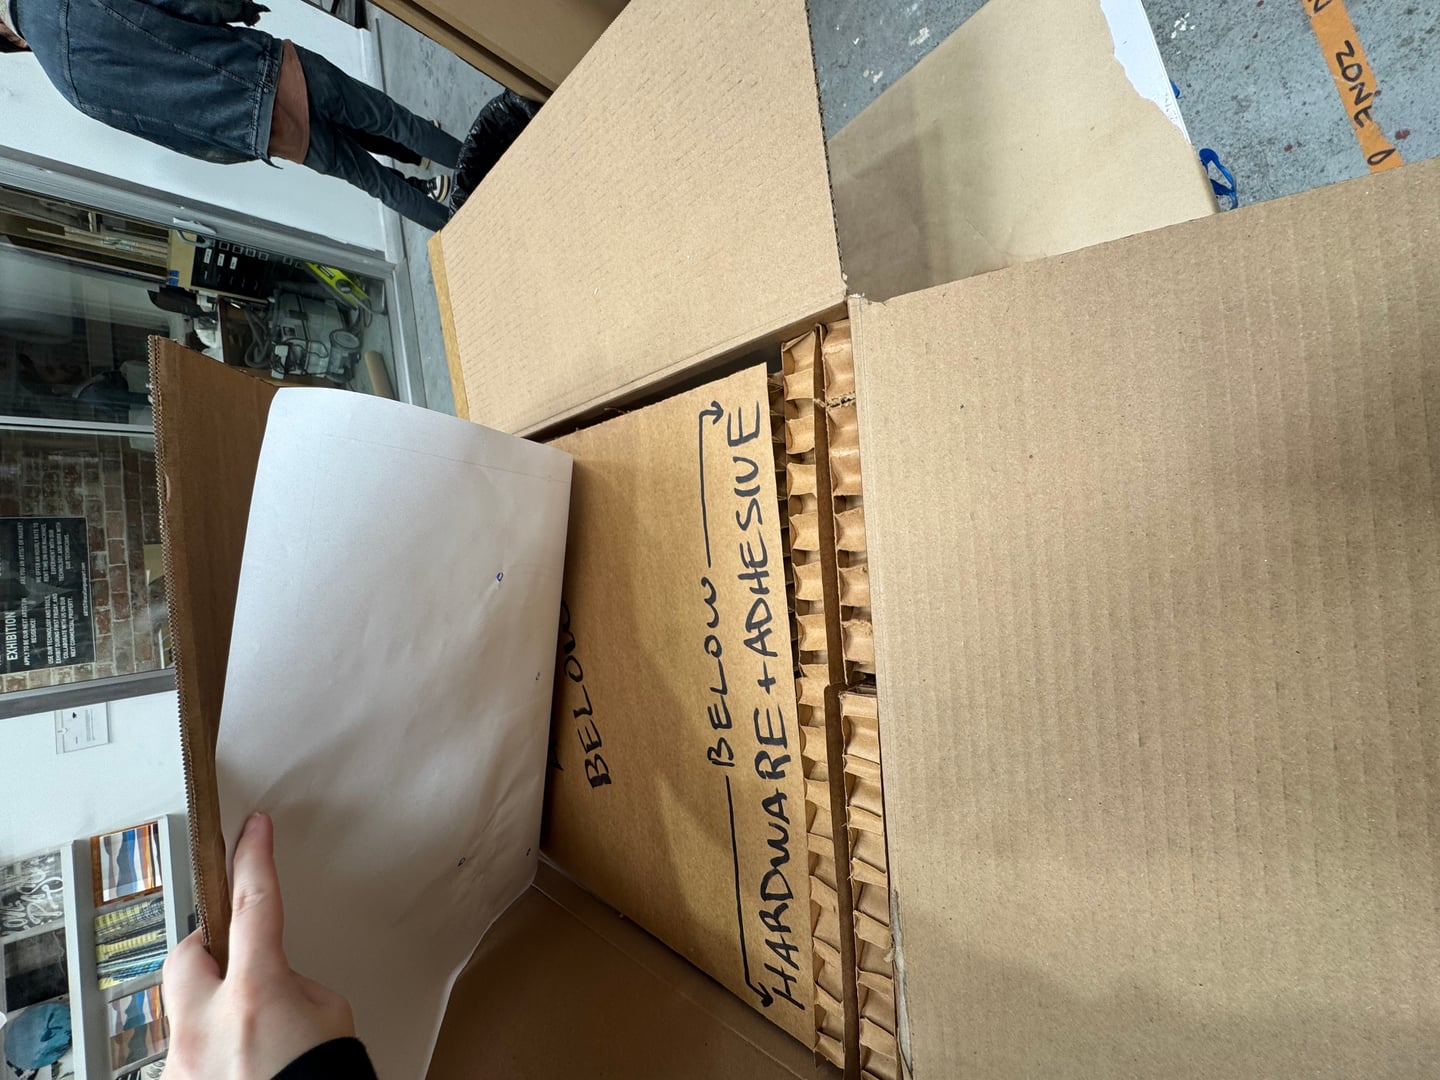 LOVE
EXHIBITION
APPLY TO BE OUR NEXT ARTIST IN
RESIDENCE!
USE OUR TECHNOLOGY AND TOOLS,
EXHIBIT DURING FIRST FRIDAY, AND
COLLABORATE WITH US ON OUR
NEXT COMMERCIAL PROPERTY.
ARE YOU AN ARTIST OR MAKER?
WE OFFER AN HOURLY RATE TO
RENT TIME ON OUR MACHINES,
EXPERIMENT WITH OUR
TECHNOLOGY, AND WORK WITH
OUR TECHNICIANS.
BELOW
BELOW
HARDWARE + ADHESIVE
ZONE